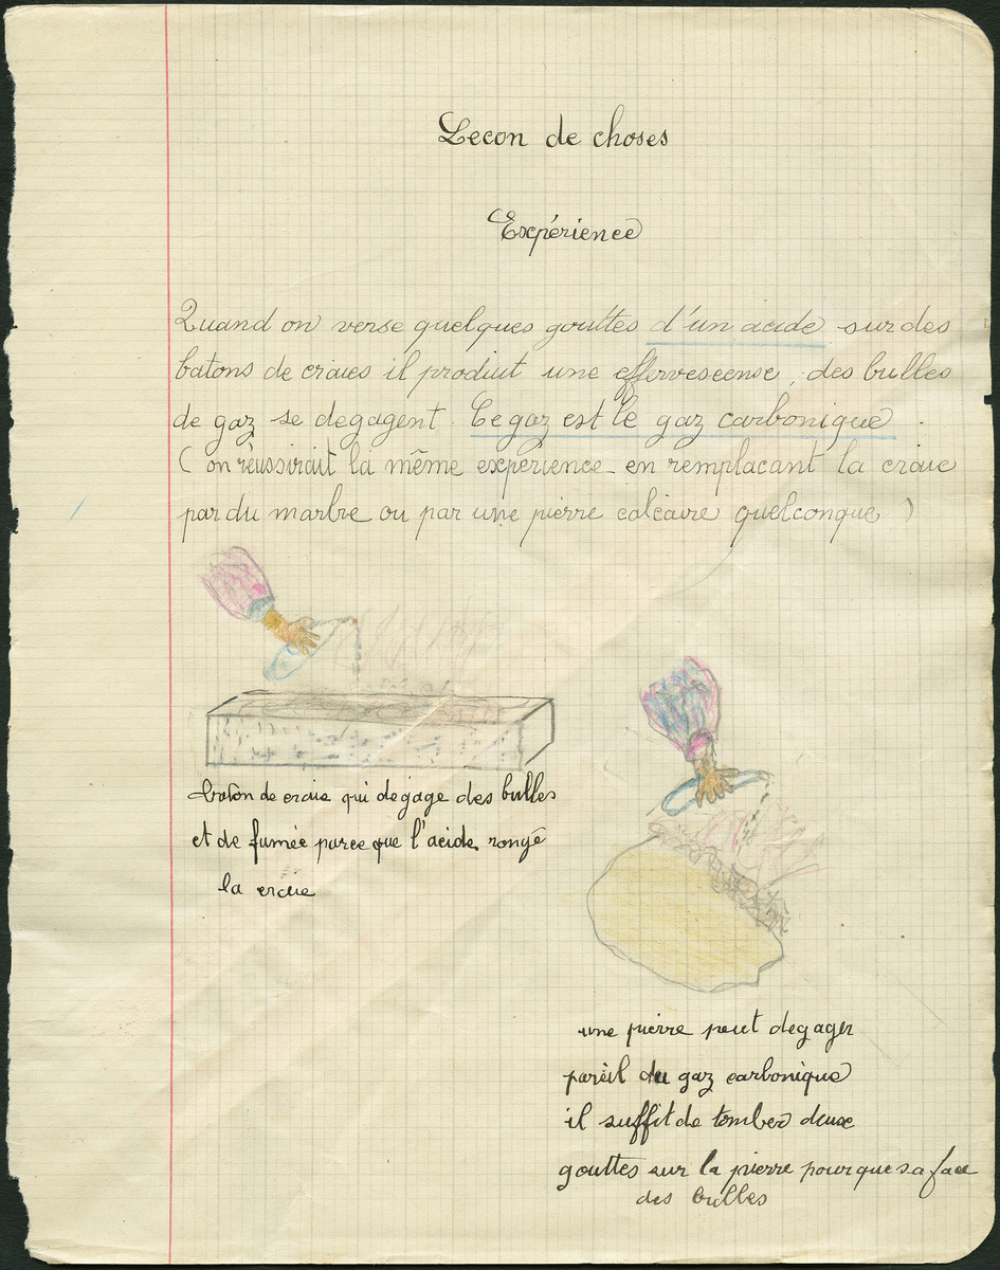 Lecon de choses
Expérience
Quand on verse quelques gouttes d'un acide sur des
batons de craies il produit une effervescense, des bulles
de gaz se degagent. Ce gaz est le gaz carbonique.
(on réussirait la même expérience en remplacant la craie
par du marbre ou par une pierre calcaire quelconque)
baton de craie qui degage des bulles
et de fumée parce que l'acide ronge
la craie
une pierre peut degager
pareil du gaz carbonique
il suffit de tomber deux
gouttes sur la pierre pour que sa face
des bulles